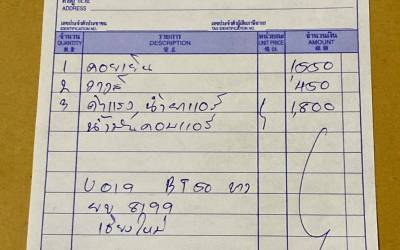 ADDRESS
เลขประจำตัวประชาชน
IDENTIFICATION NO.
เลขประจำตัวผู้เสียภาษีอากร
TAX IDENTIFICATION NO.
จำนวน รายการ หน่วยละ จำนวนเงิน
QUANTITY DESCRIPTION UNIT PRICE AMOUNT
1 คอยเย็น
2 วาล์ว 450
3 ค่าแรง น้ำยาแอร์ 1,800
น้ำมันคอมแอร์
U019 BT50 ขาว
ยบ 8199
เชียงใหม่